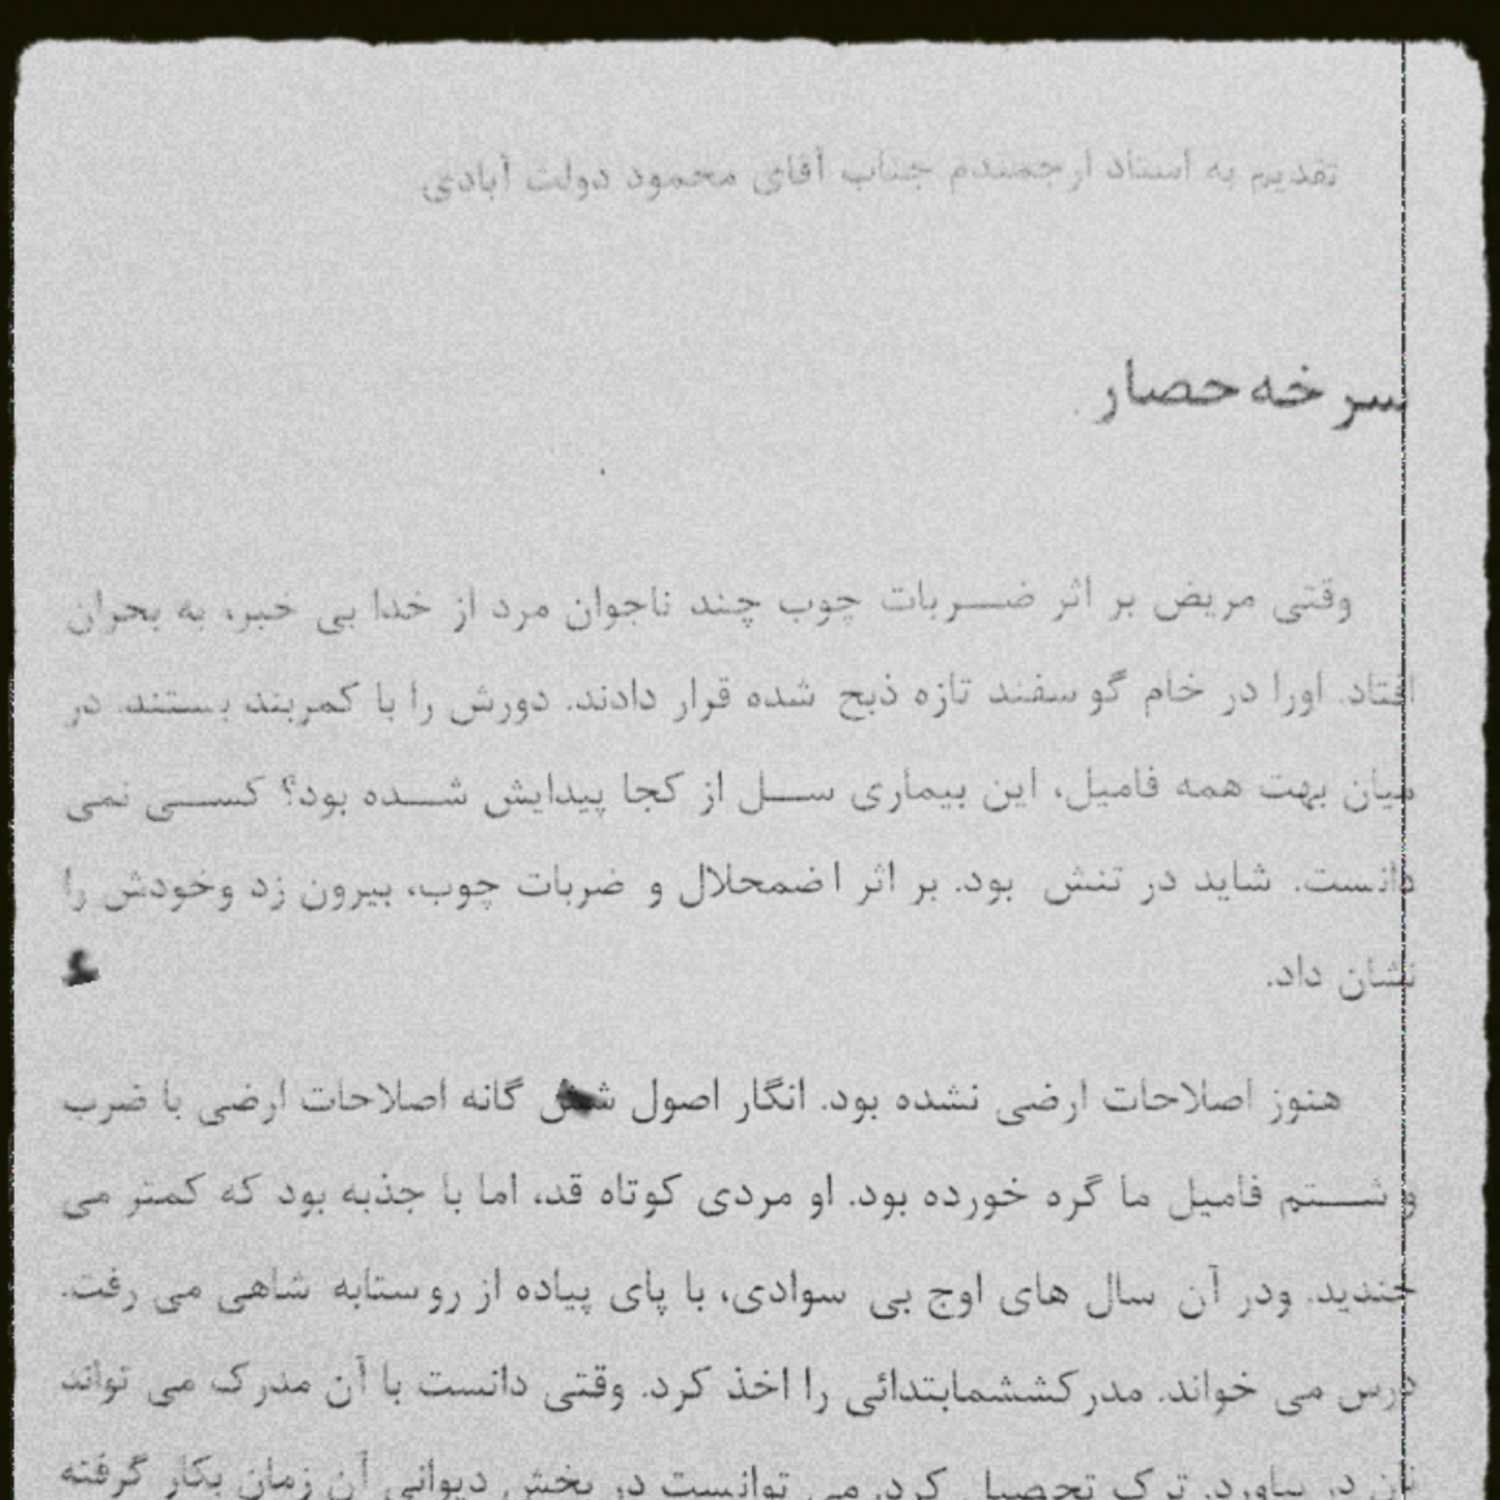 تقدیم به استاد ارجمندم جناب آقای محمود دولت آبادی
سرخه‌حصار
وقتی مریض بر اثر ضربات چوب چند ناجوان مرد از خدا بی خبر، به بحران
افتاد. اورا در خام گوسفند تازه ذبح شده قرار دادند. دورش را با کمربند بستند. در
میان بهت همه فامیل، این بیماری سل از کجا پیدایش شده بود؟ کسی نمی
دانست. شاید در تنش بود. بر اثر اضمحلال و ضربات چوب، بیرون زد وخودش را
نشان داد.
هنوز اصلاحات ارضی نشده بود. انگار اصول شش گانه اصلاحات ارضی با ضرب
و شتم فامیل ما گره خورده بود. او مردی کوتاه قد، اما با جذبه بود که کمتر می
خندید. ودر آن سال های اوج بی سوادی، با پای پیاده از روستابه شاهی می رفت.
درس می خواند. مدرکششمابتدائی را اخذ کرد. وقتی دانست با آن مدرک می تواند
نان در بیاورد. ترک تحصیل کرد. می توانست در بخش دیوانی آن زمان بکار گرفته